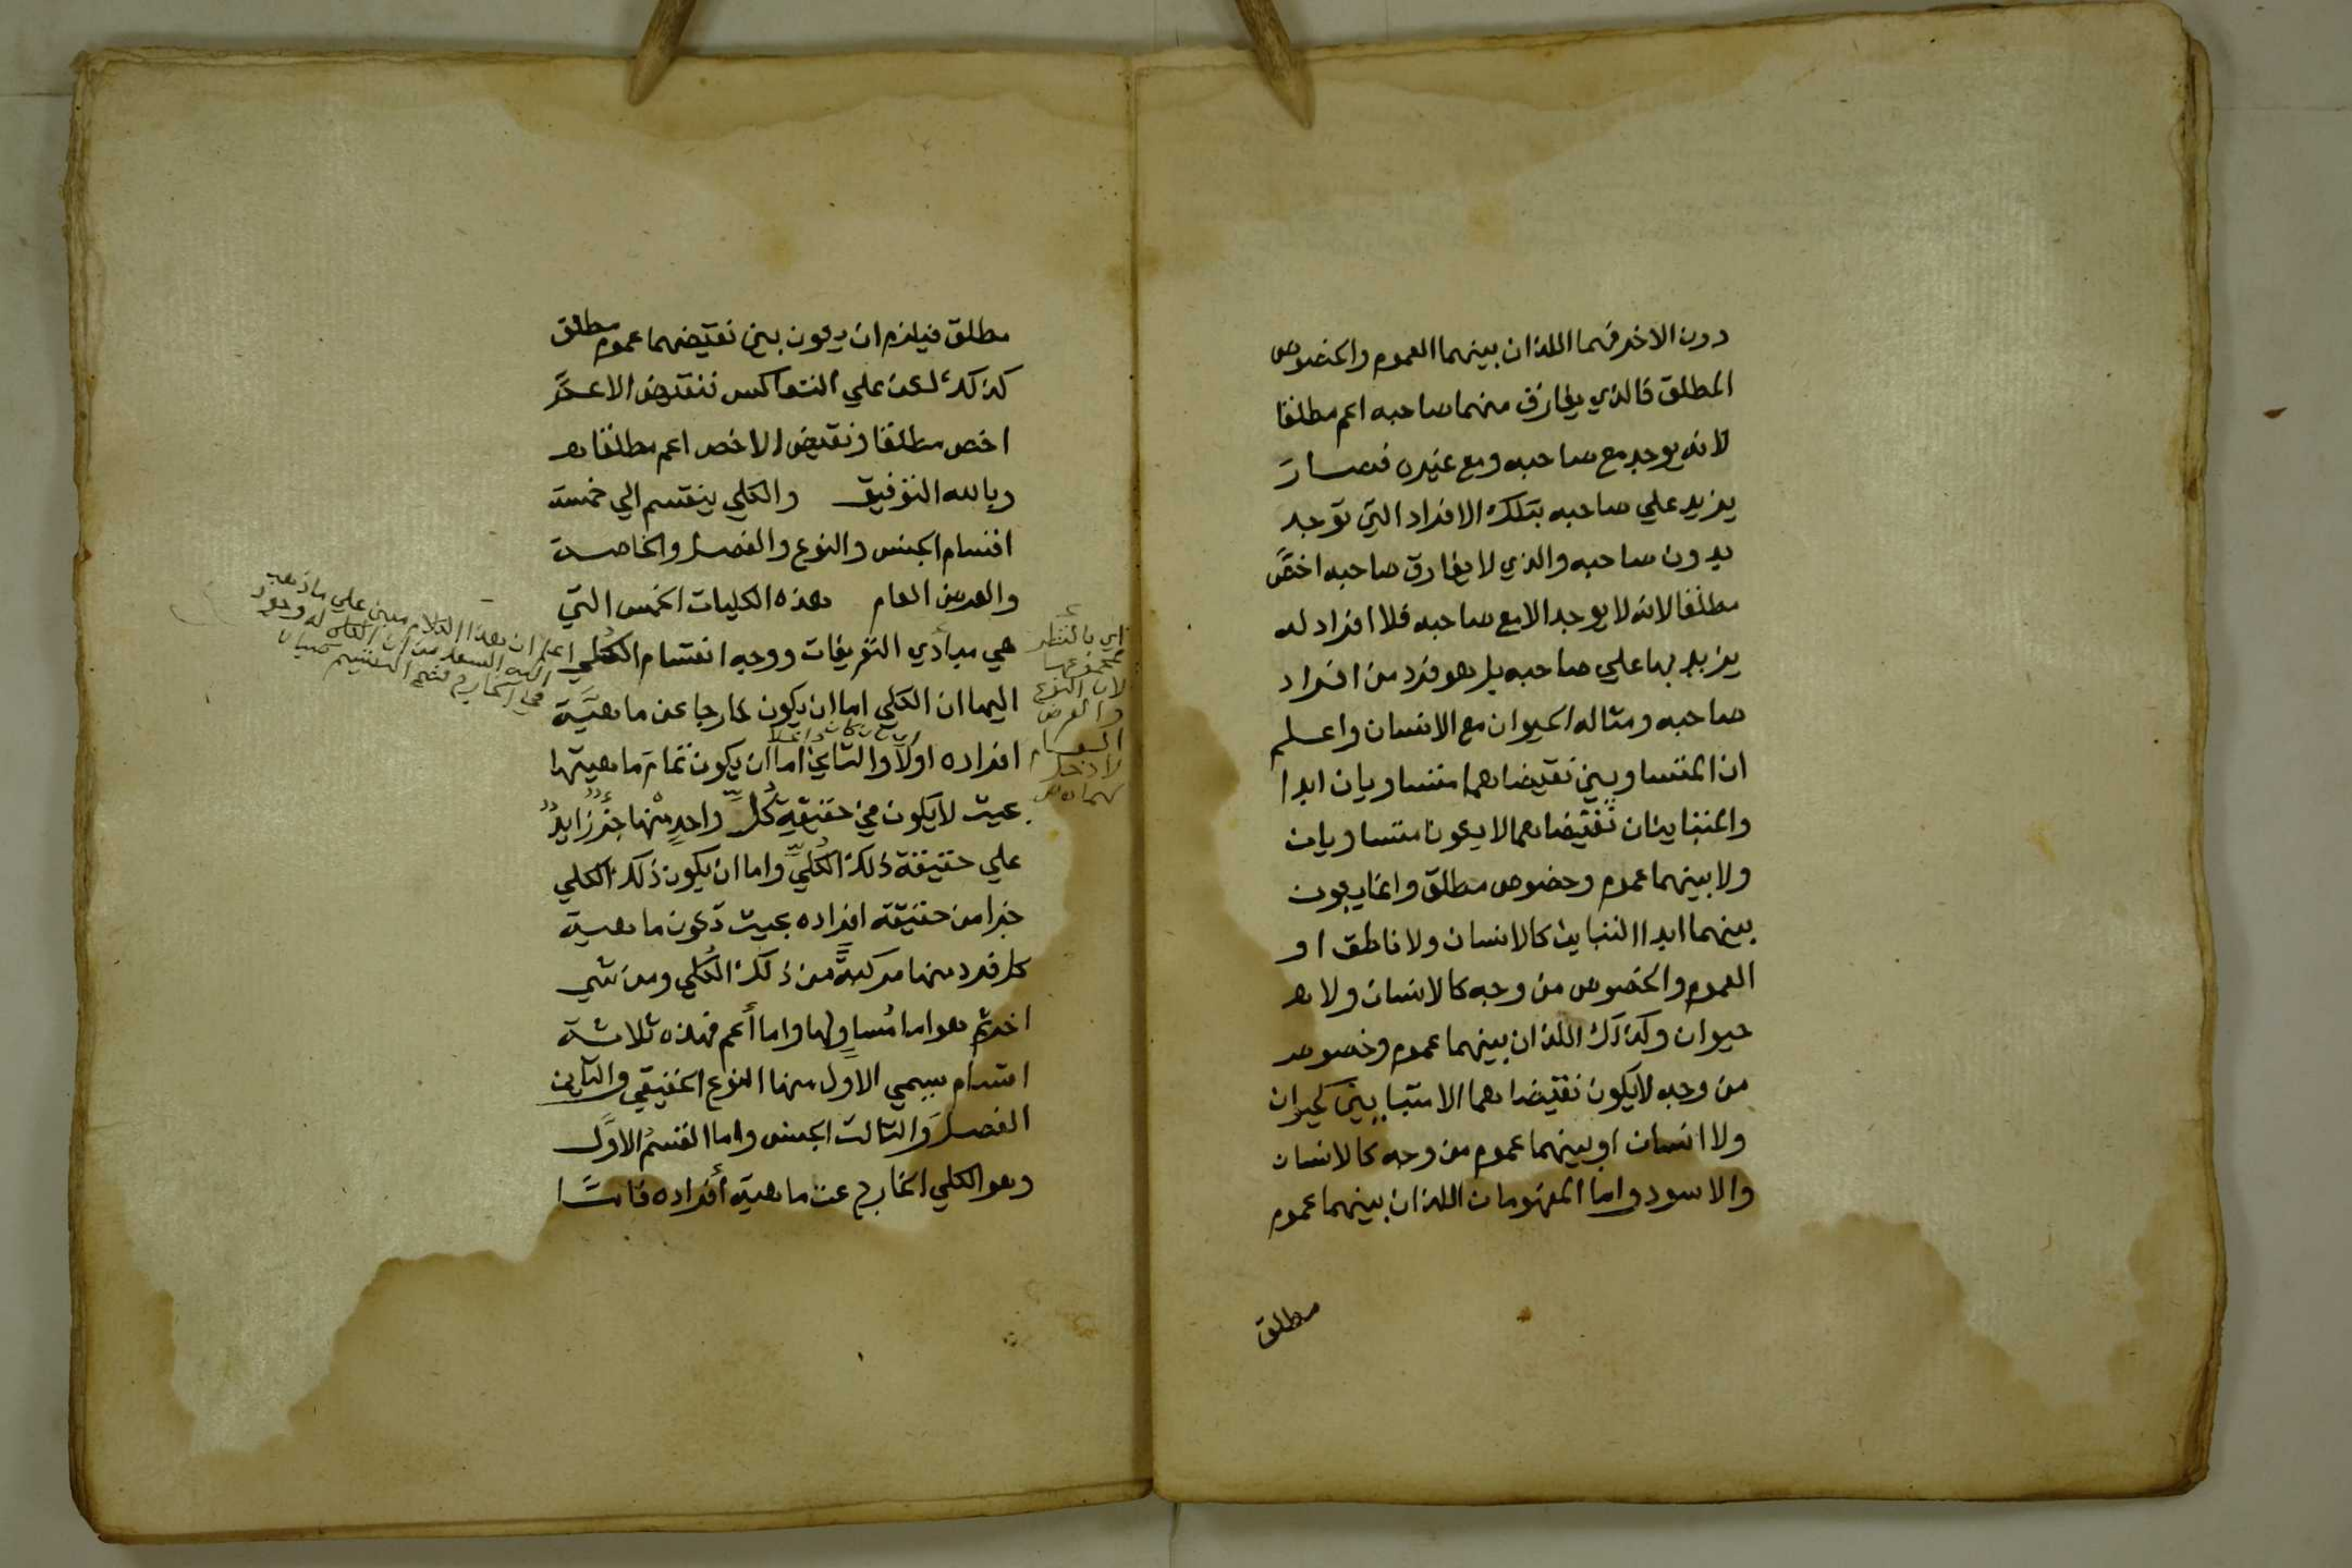 دون الاخر فهما اللذان بينهما العموم والخصوص
المطلق فالذي يفارق منهما صاحبه اعم مطلقا
لانه يوجد مع صاحبه ومع غيره فصار
يزيد علي صاحبه بتلك الافراد التي توجد
بدون صاحبه والذي لا يفارق صاحبه اخصّ
مطلقا لانه لا يوجد الا مع صاحبه فلا افراد له
يزيد بها علي صاحبه بل هو فرد من افراد
صاحبه ومثاله الحيوان مع الانسان واعلم
ان المتساويين نقيضاهما متساويان ابدا
والمتباينان نقيضاهما لا يكونا متساويان
ولا بينهما عموم وخصوص مطلق وانما يكون
بينهما ابدا التباين كالانسان ولا ناطق او
العموم والخصوص من وجه كالانسان ولا
حيوان وكذلك اللذان بينهما عموم وخصوص
من وجه لا يكون نقيضاهما الا متباينين كحيوان
ولا انسان او بينهما عموم من وجه كالانسان
والاسود واما المفهومان اللذان بينهما عموم
مطلق
مطلق فيلزم ان يكون بين نقيضهما عموم مطلق
كذلك لكن علي التعاكس فنقيض الاعمّ
اخص مطلقا ونقيض الاخص اعم مطلقا
وبالله التوفيق والكلي ينقسم الي خمسة
اقسام الجنس والنوع والفصل والخاصة
والعرض العام هذه الكليات الخمس التي
هي مبادي التعريفات ووجه انقسام الكلي
اليها ان الكلي اما ان يكون خارجا عن ماهيّة
افراده اولا والثاني اما ان يكون تمام ماهيتها
بحيث لا يكون في حقيقة كلّ واحد منها جزء زايد
علي حقيقة ذلك الكليّ واما ان يكون ذلك الكلي
جزا من حقيقة افراده بحيث تكون ماهية
كل فرد منها مركبة من ذلك الكلي ومن شي
اخر ثم هو اما مساو لها واما أعم فهذه ثلاثة
اقسام يسمي الاول منها النوع الحقيقي والثاني
الفصل والثالث الجنس واما القسم الاوّل
وهو الكلي الخارج عن ماهية أفراده فامّا
اي بالنظر
لمجموعها
لان النوع
والعرض
العام
لا دخل
لهما
اعلم ان هذا الكلام مبني علي ما ذهب
اليه السعد من ان الكلي له وجود
في الخارج